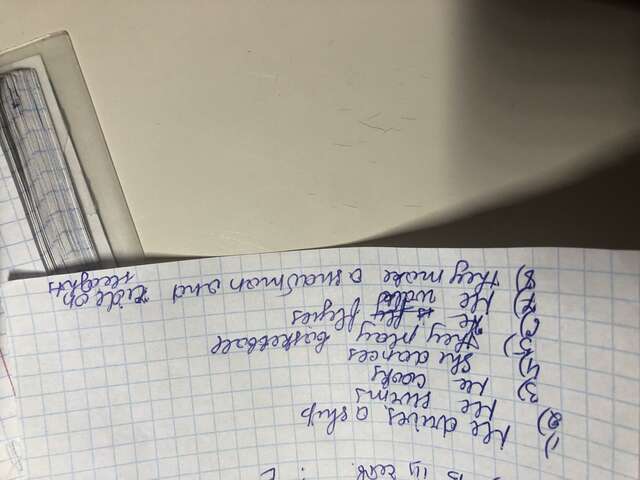 1) He drives a ship
2) He swims
3) He cooks
4) She dances
5) They play basketball
6) He is flyies
7) He
8) They make a snawman and ride on